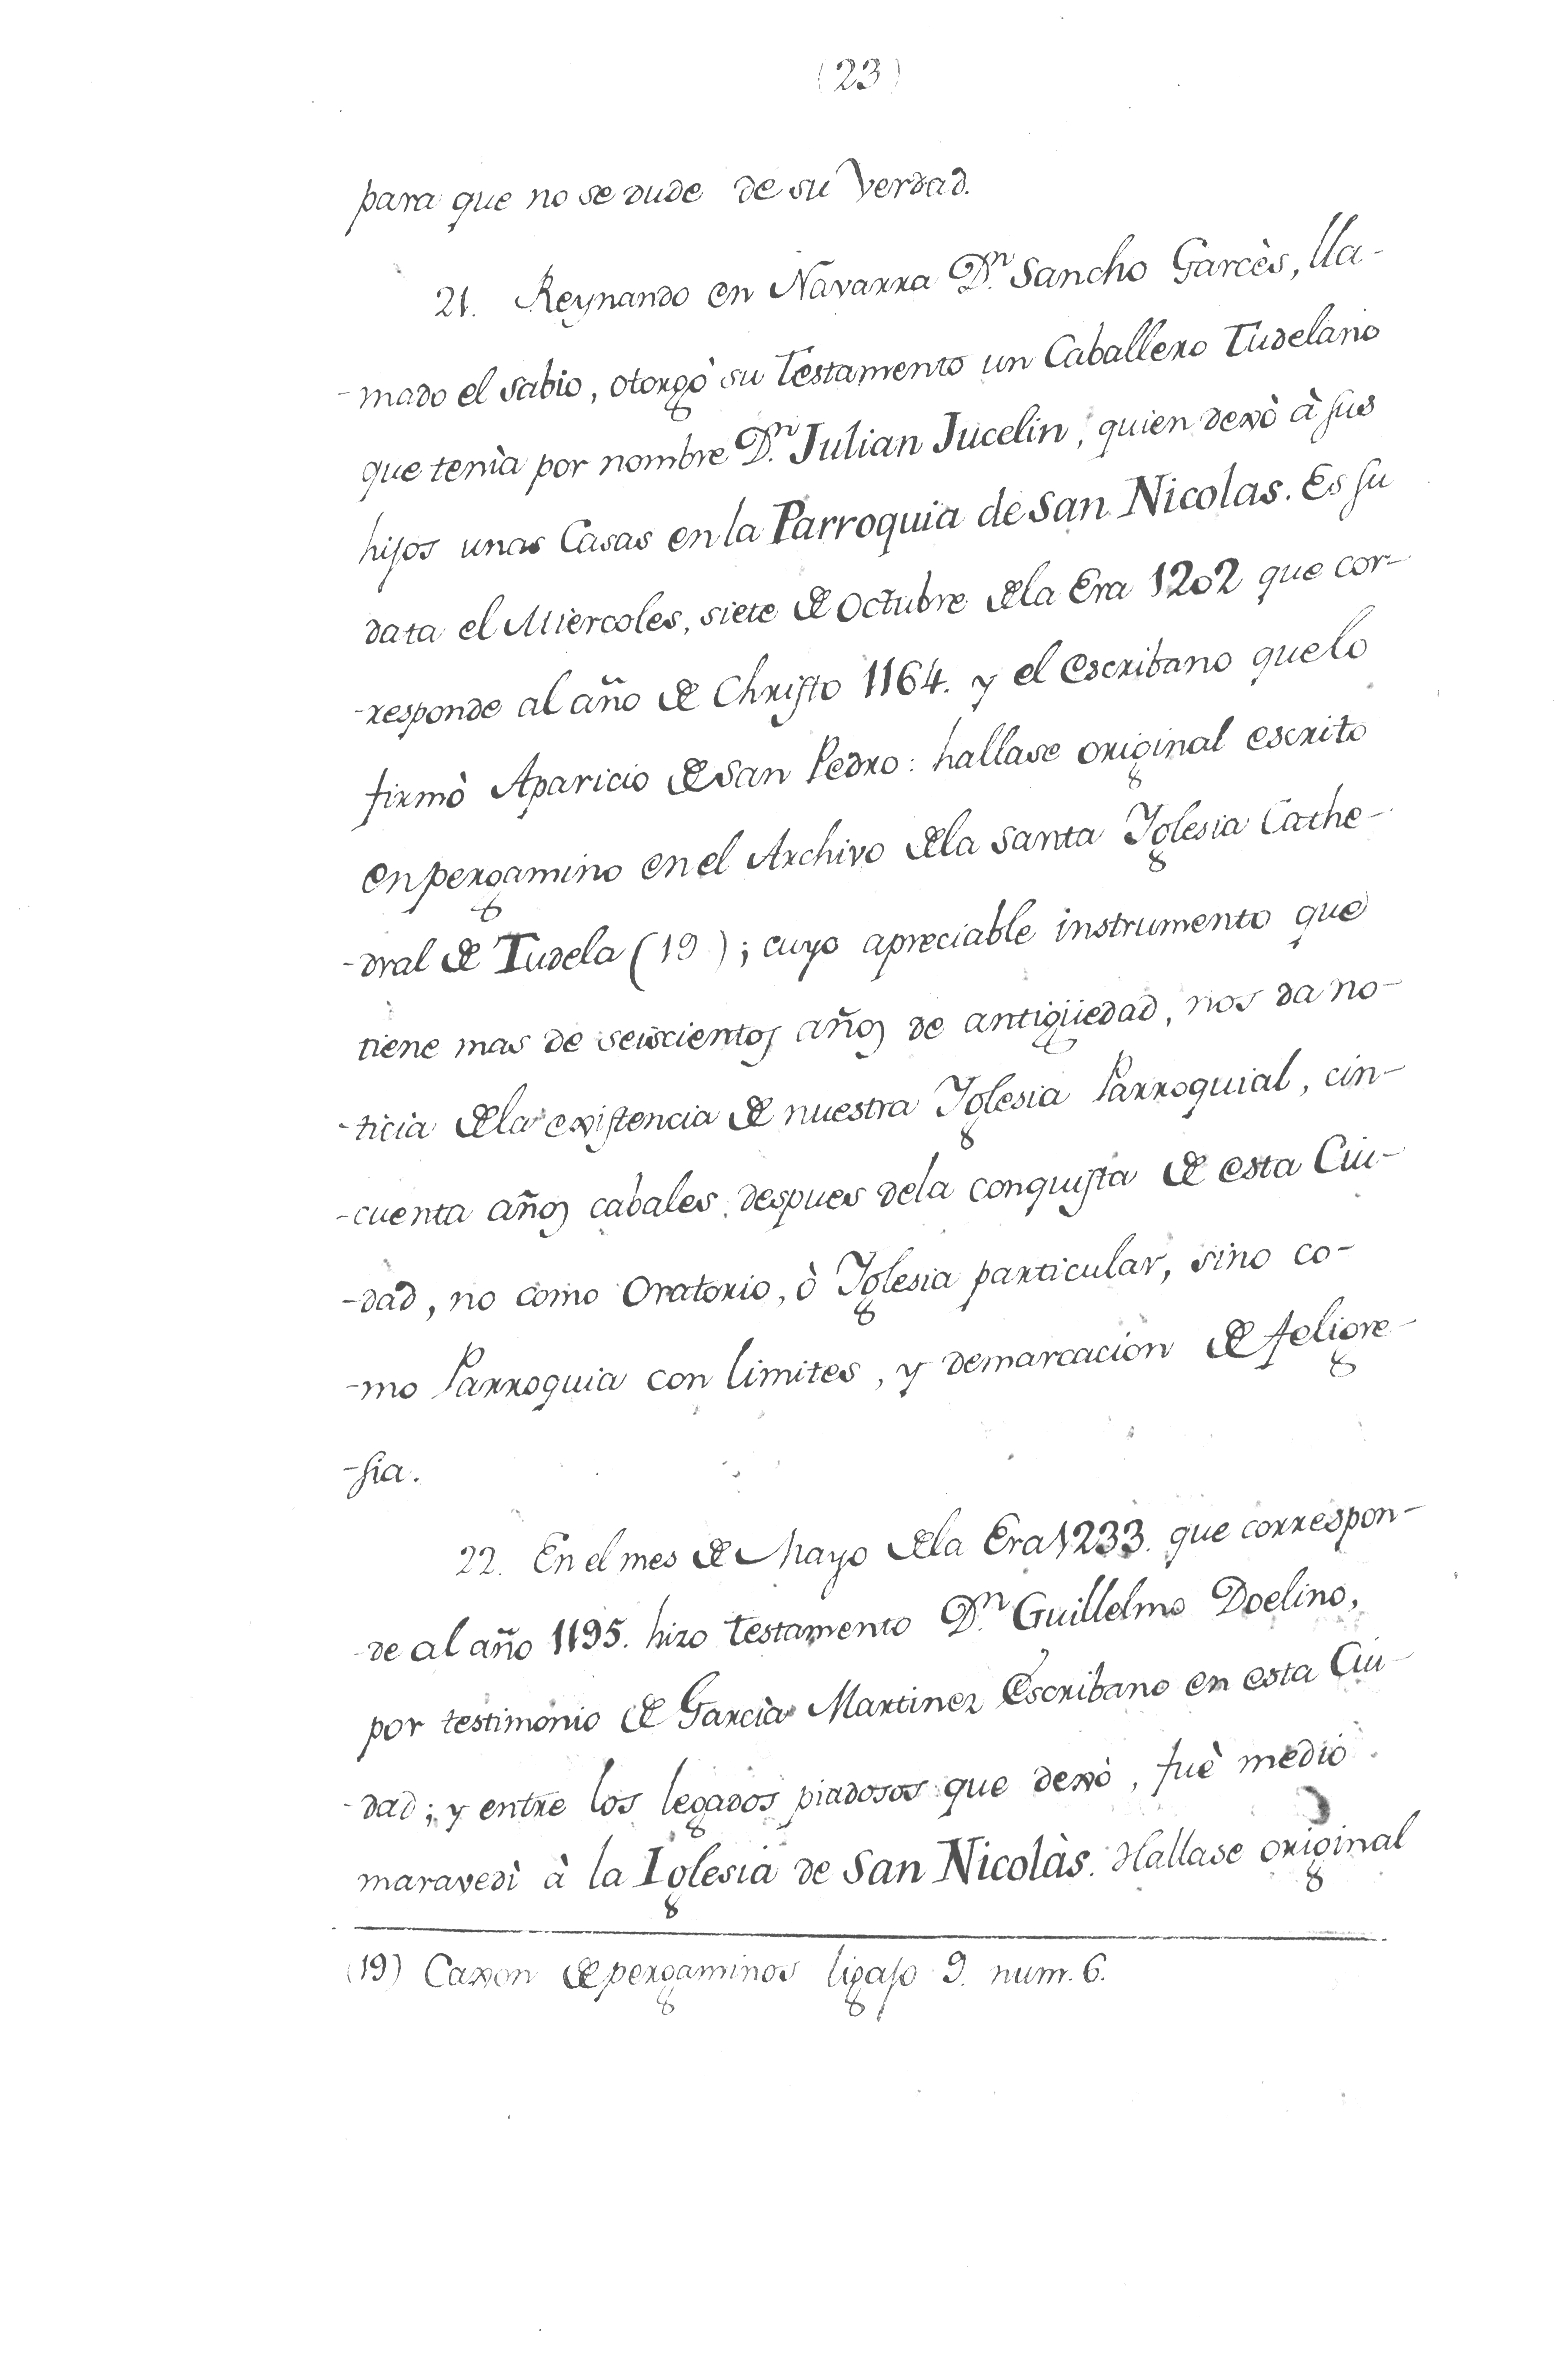 (23)
para que no se dude de su Verdad.
21. Reynando en Navarra D.n Sancho Garcès, lla-
-mado el sabio, otorgò su Testamento un Caballero Tudelano
que tenìa por nombre D.n Julian Jucelin, quien dexò à sus
hijos unas Casas en la Parroquia de San Nicolas. Es su
data el Miercoles, siete de Octubre de la Era 1202 que cor-
-responde al año de Christo 1164. y el Escribano que lo
firmò Aparicio de San Pedro: hallase original escrito
en pergamino en el Archivo de la Santa Yglesia Cathe-
-dral de Tudela (19); cuyo apreciable instrumento que
tiene mas de seiscientos años de antigüedad, nos da no-
-ticia de la existencia de nuestra Yglesia Parroquial, cin-
-cuenta años cabales despues dela conquista de esta Ciu-
-dad, no como Oratorio, ò Yglesia particular, sino co-
-mo Parroquia con limites, y demarcacion de feligre-
-sia.
22. En el mes de Mayo de la Era 1233. que correspon-
-de al año 1195. hizo testamento D.n Guillelmo Doelino,
por testimonio de Garcìa Martinez Escribano en esta Ciu-
-dad; y entre los legados piadosos que dexò, fuè medio
maravedì à la Iglesia de San Nicolàs. Hallase original
(19) Caxon de pergaminos ligajo 9. num. 6.